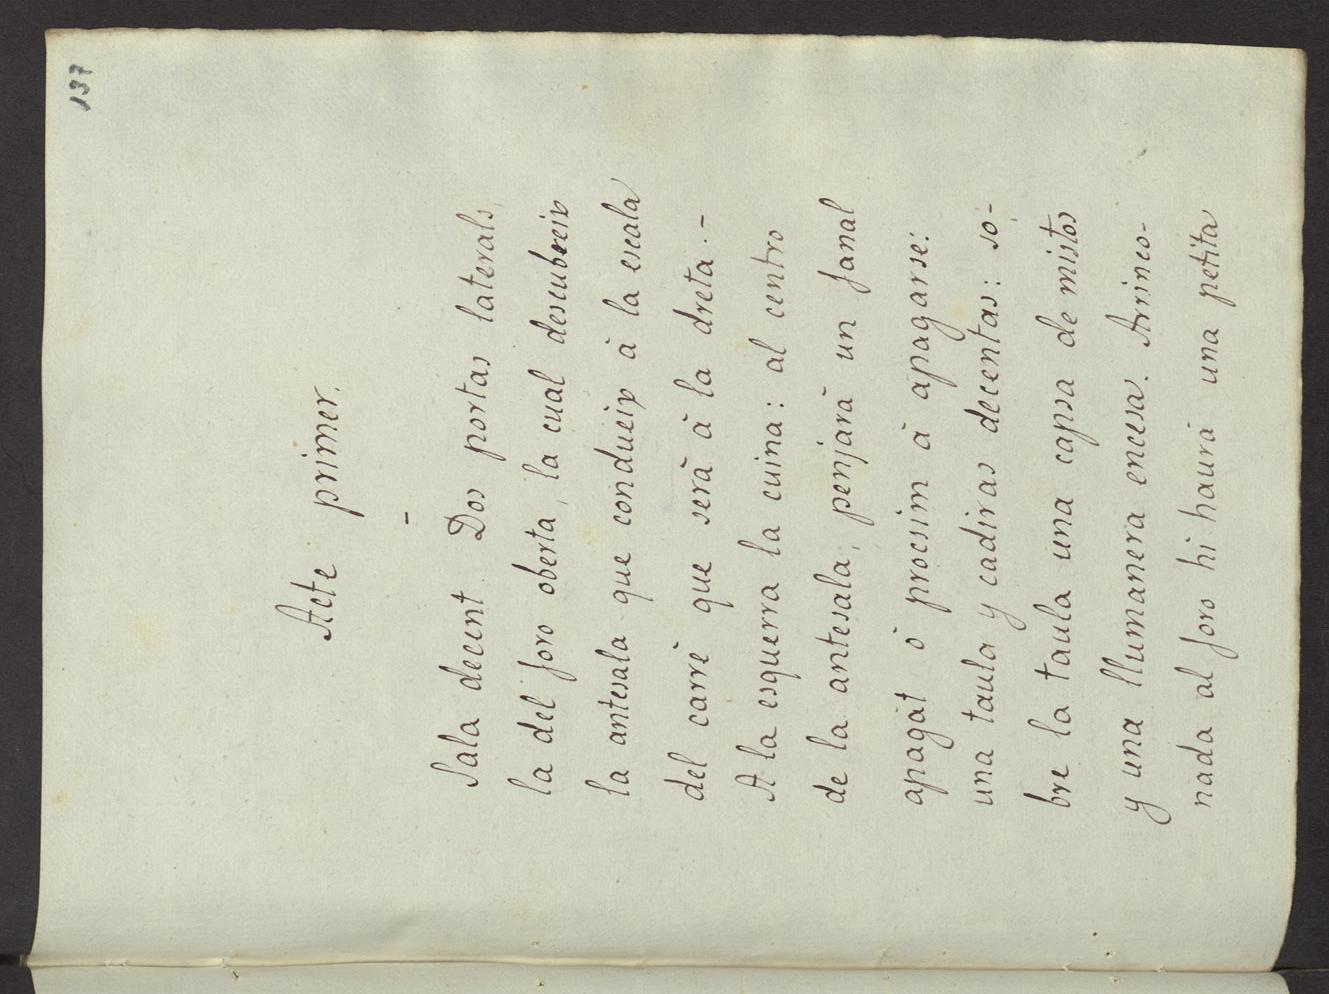 137
Acte primer.
-
Sala decent. Dos portas laterals,
la del foro oberta, la cual descubreix
la antesala que condueix à la escala
del carrè que serà à la dreta. -
A la esquerra la cuina: al centro
de la antesala, penjarà un fanal
apagàt ò procsim à apagarse:
una taula y cadiras decentas: so-
bre la taula una capsa de mistos
y una llumanera encesa. Arrinco-
nada al foro hi haurà una petita